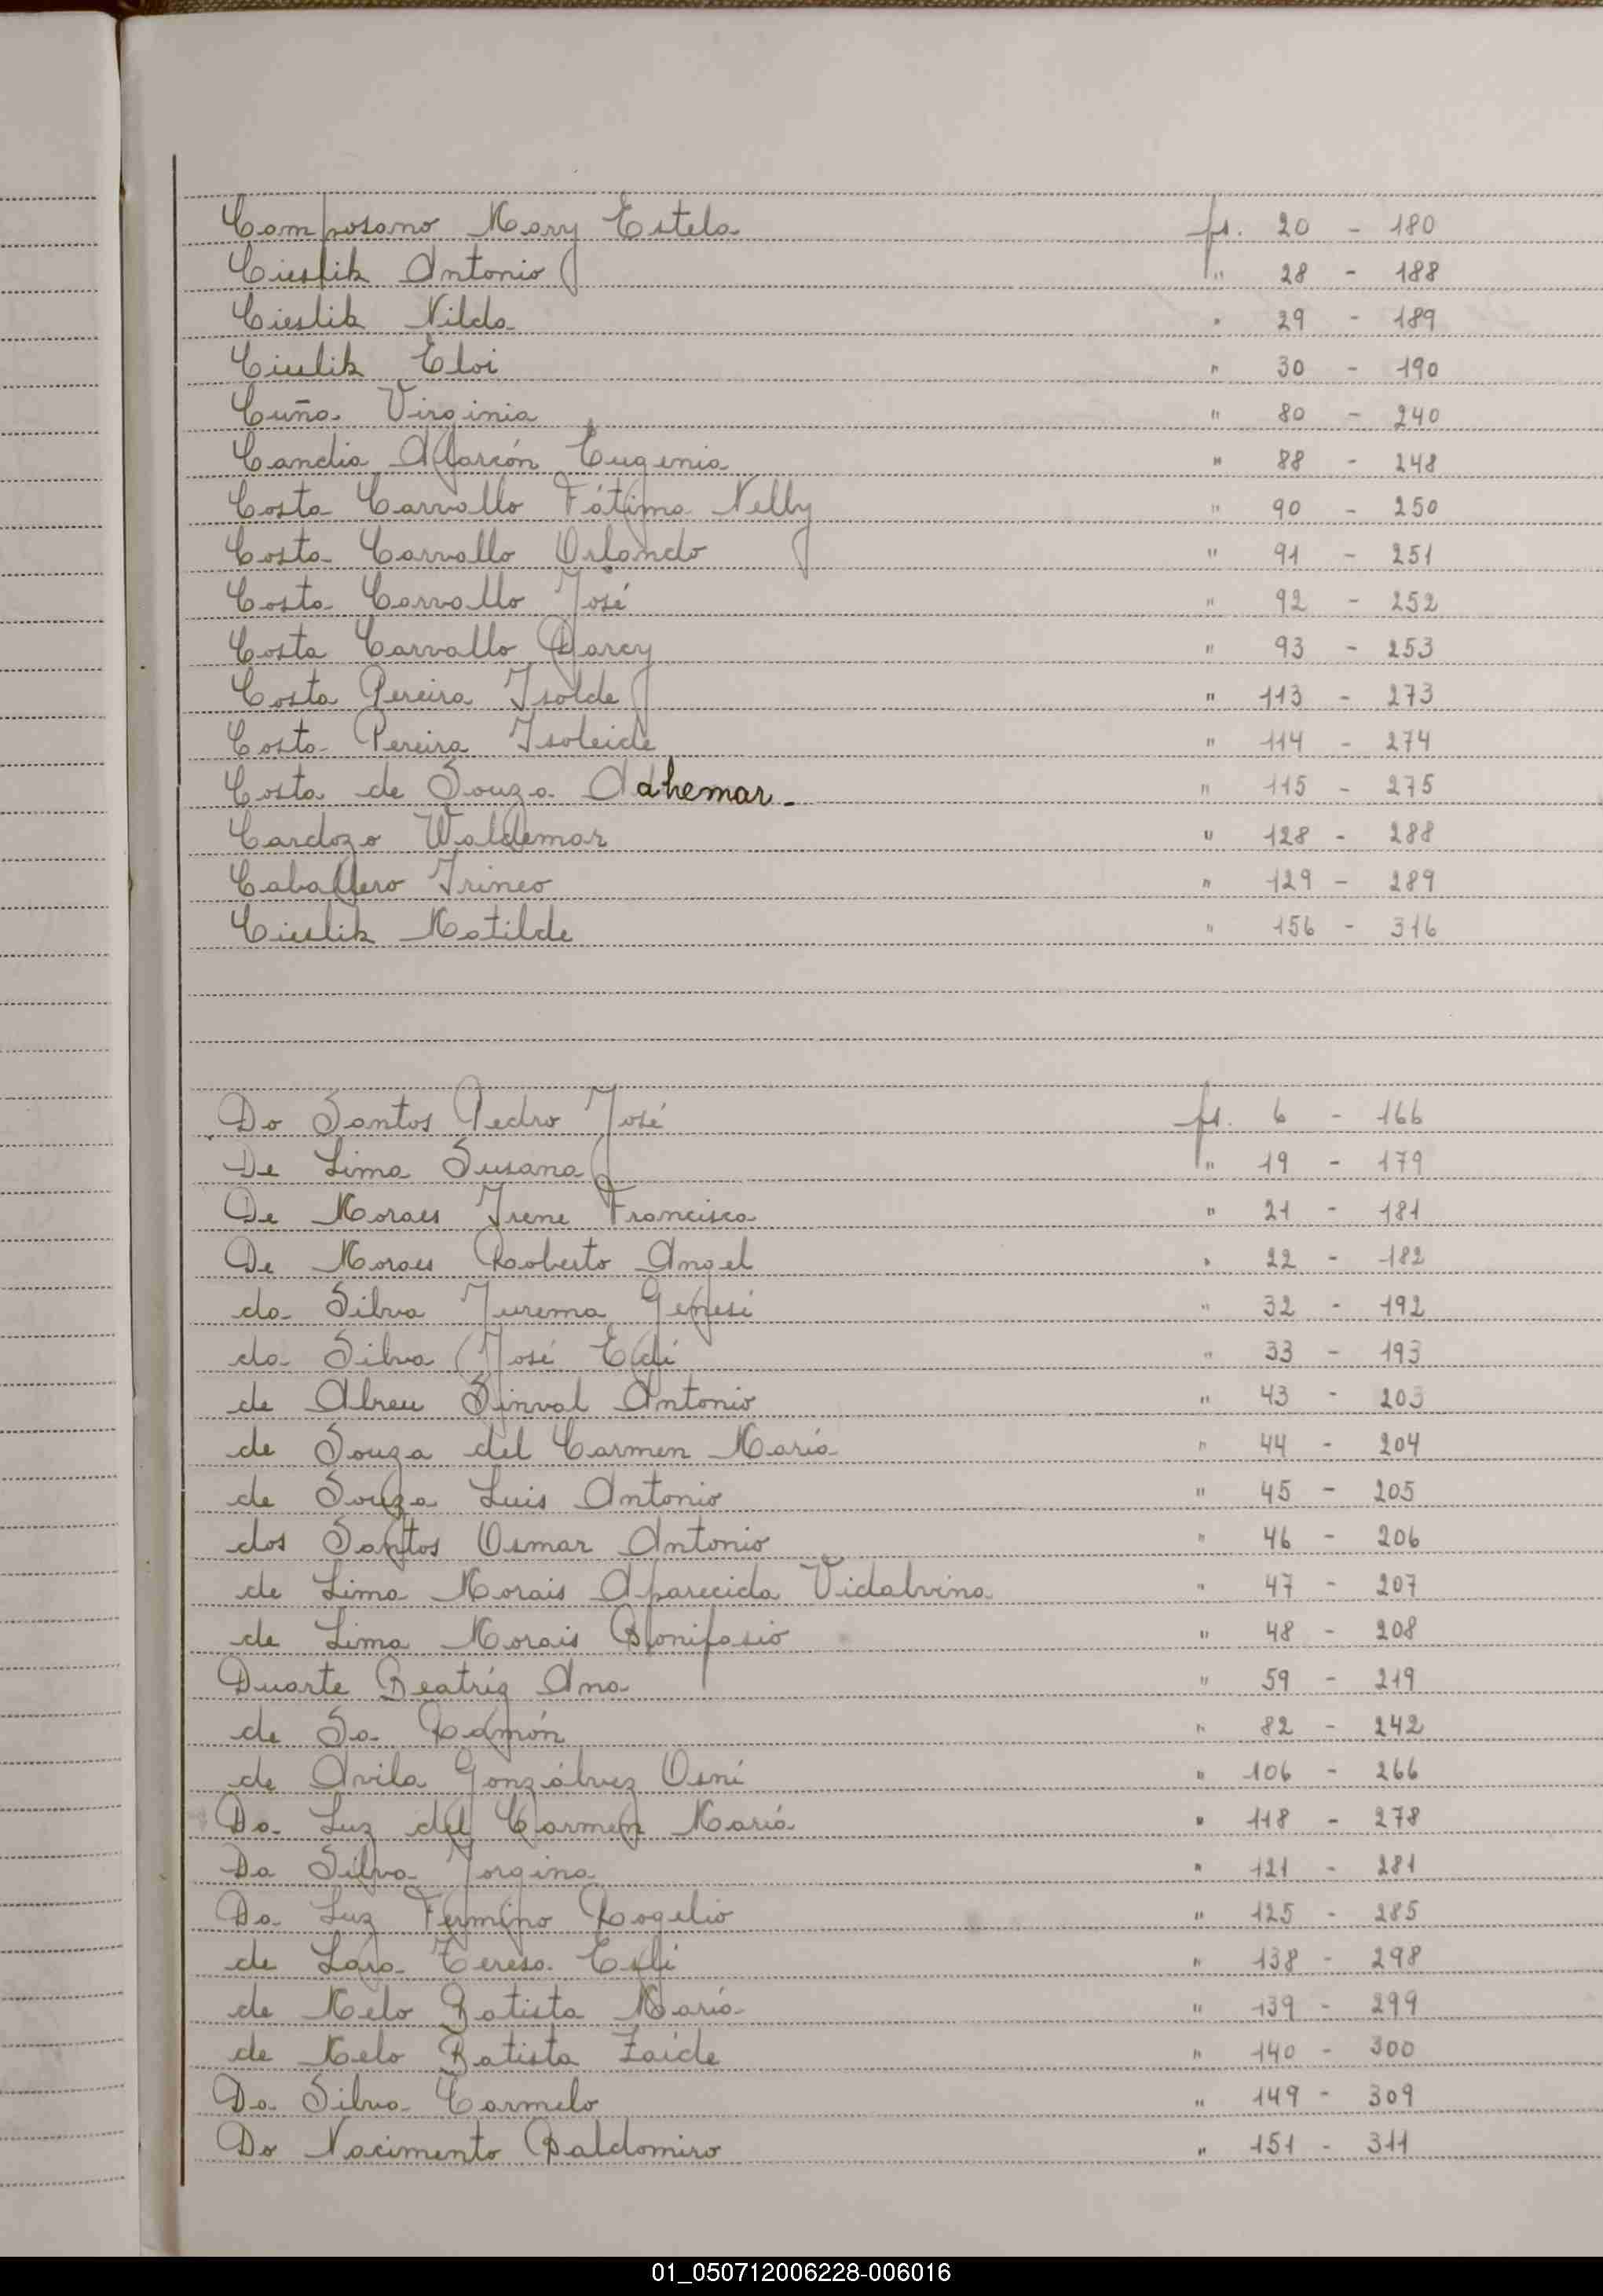 Camposano Mary Estela fs. 20 - 180
Cieslik Antonio " 28 - 188
Cieslik Nilda " 29 - 189
Cieslik Eloi " 30 - 190
Cuña Virginia " 80 - 240
Candia Alarcón Eugenia " 88 - 248
Costa Carvallo Fátima Nelly " 90 - 250
Costa Carvallo Orlando " 91 - 251
Costa Carvallo José " 92 - 252
Costa Carvallo Darcy " 93 - 253
Costa Pereira Isolde " 113 - 273
Costa Pereira Isoleide " 114 - 274
Costa de Souza Adhemar - " 115 - 275
Cardozo Waldemar " 128 - 288
Caballero Irineo " 129 - 289
Cieslik Matilde " 156 - 316
Do Santos Pedro José fs. 6 - 166
De Lima Susana " 19 - 179
De Moraes Irene Francisca " 21 - 181
De Moraes Roberto Angel " 22 - 182
da Silva Jurema Genesi " 32 - 192
da Silva José Edi " 33 - 193
de Abreu Sinval Antonio " 43 - 203
de Souza del Carmen María " 44 - 204
de Souza Luis Antonio " 45 - 205
dos Santos Osmar Antonio " 46 - 206
de Lima Morais Aparecida Vidalvina " 47 - 207
de Lima Morais Bonifasio " 48 - 208
Duarte Beatríz Ana " 59 - 219
de Sa Ramón " 82 - 242
de Avila Gonzálvez Osni " 106 - 266
Da Luz del Carmen María " 118 - 278
Da Silva Jorgina " 121 - 281
Da Luz Fermino Rogelio " 125 - 285
de Lara Teresa Esli " 138 - 298
de Melo Batista María " 139 - 299
de Melo Batista Zaide " 140 - 300
Da Silva Carmelo " 149 - 309
Do Nacimento Baldomiro " 151 - 311
01_050712006228-006016